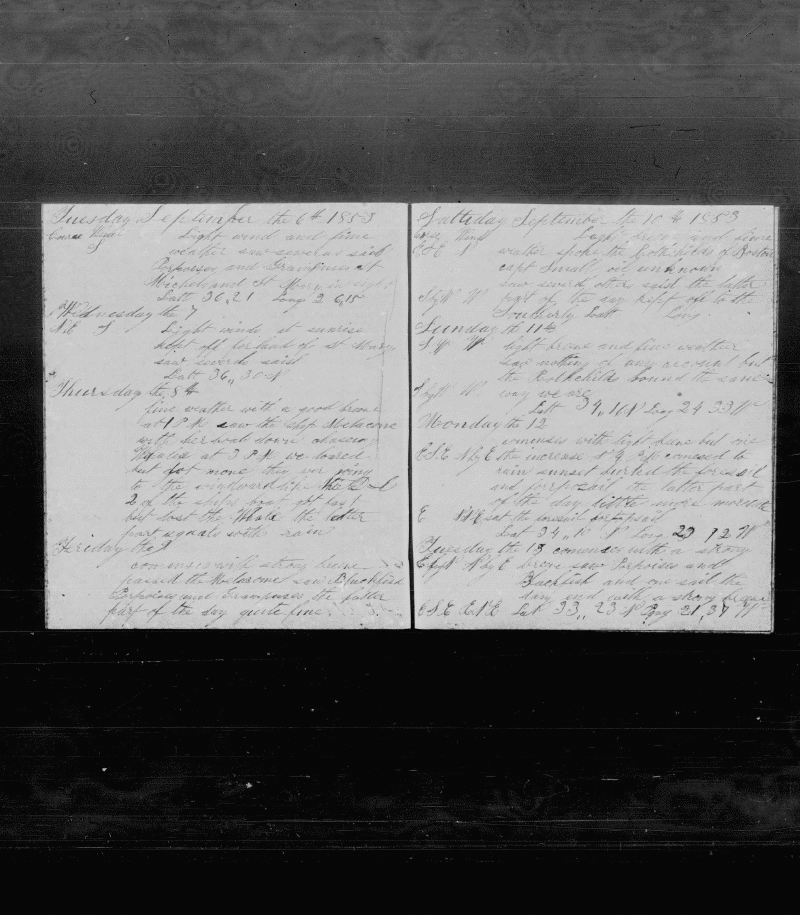 Tuesday September the 6th 1853
Course Wind Light wind and fine
S weather saw several sail
Porpoises and Grampuses at
Michels and St Marys in sight
Latt 36,21 Long 2
Wednesday the 7
NE S Light winds at sunrise
kept off for land of St Marys
saw several sail
Latt 36,,30 N
Thursday the 8th
fine weather with a good breeze
at 1 P M saw the ship
with her boats down chasing
Whales at 3 P M we lowered
but got none they wer going
to the windward
2 of the ships boat got fast
but lost the Whale the latter
part squals with rain
Friday the 9
commences with strong breeze
passed the saw Blackfish
Porpoises and Grampuses the latter
part of the day quite fine
Satterday September the 10th 1853
Course Wind Light breeze and fine
ESE N weather spoke the Rothchilds of Boston
capt Small oil unknown
saw several other sail the latter
S by W W part of the day kept off to the
Southerly Latt Long
Sunday the 11th
SW W light breeze and fine weather
saw nothing of any account but
the Rothchild bound the same
S by W W way we are
Latt 34,,16 N Long 24 33 W
Monday the 12
comences with light but
ESE N by E the increase comenced to
rain sunset the foresail
and the latter part
of the day little more moderate
E NNE set the foresail
Lat 34,,10 N Long 23 12 W
Tuesday the 13 comences with a strong
E by N N by E breeze saw Porpoises and
Blackfish and one sail the
day end with a strong breeze
ESE ENE Latt 33,,23 N Long 21,37 W